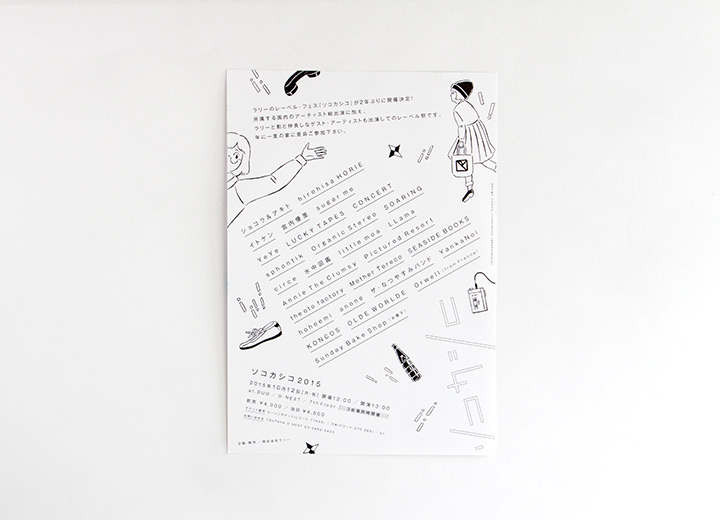 ラリーのレーベル・フェス「ソコカシコ」が2年ぶりに開催決定!
所属する国内のアーティスト総出演に加え、
ラリーと影と仲良しなゲスト・アーティストも出演してのレーベル祭です。
年に一度の宴に是非ご参加下さい。
ショコラ&アキト hirohisa HORIE
イトケン 宮内優里 sugar me
YeYe LUCKY TAPES CONCERT
sphontik Organic Stereo SOARING
circe 水中図鑑 little moa LLama
Annie The Clumsy Pictured Resort
theoto factory Mother Tereco SEASIDE BOOKS
hohoemi anone ザ・なつやすみバンド VankaNoi
KONCOS OLDE WORLDE Orwell (from france)
Sunday Bake Shop (お菓子)
ソコカシコ2015
2015年10月12日(月・祝) 開場12:00 / 開演13:00
at.DUO / O-NEST / 7th Floor 3会場同時開催
前売 ¥4,000 / 当日 ¥4,500